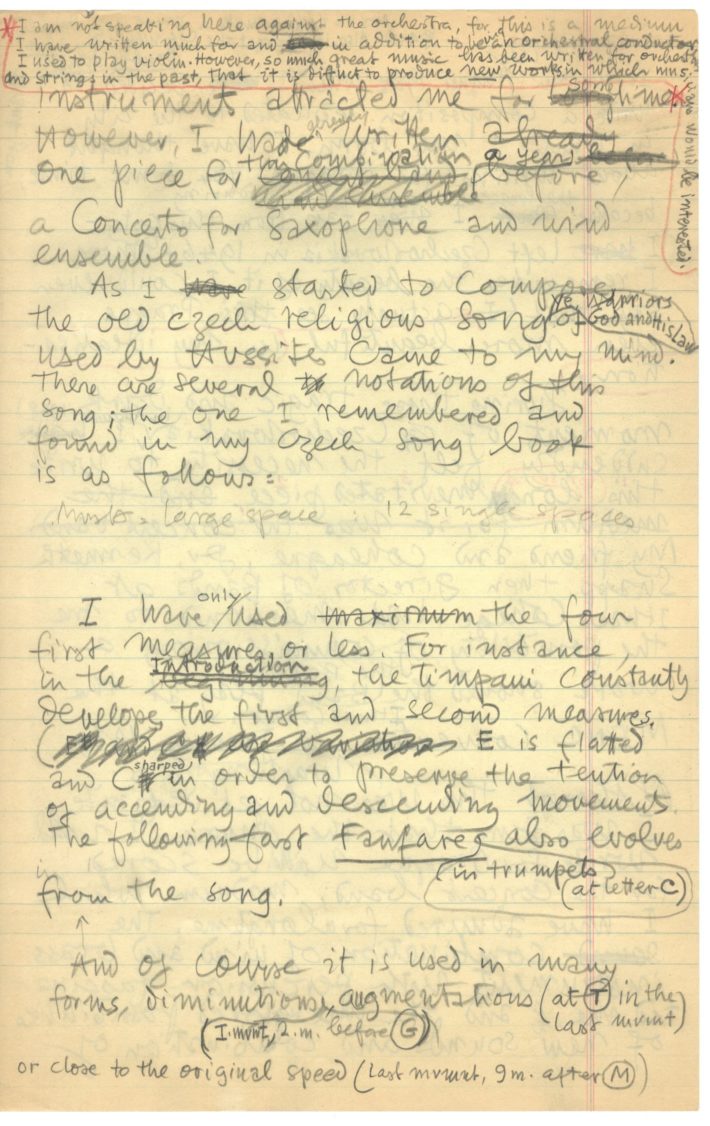 *I am not speaking here against the orchestra, for this is a medium
I have written much for and in addition to being an orchestral conductor,
I used to play violin. However, so much great music has been written for orchestra
and strings in the past, that it is dificult to produce new works in which mus.
would be interested.
instrument attracted me for some time*
However, I had already written already
one piece for this Combination a year before,
a Concerto for Saxophone and wind
ensemble.
As I have started to Compose,
the old czech religious song "Ye Warriors
of God and His law
used by Hussites came to my mind.
There are several notations of this
song; the one I remembered and
found in my Czech song book
is as follows:
large space 12 single spaces
I have only used maximum the four
first measures, or less. For instance,
in the Introduction beginning, the timpani constantly
develope the first and second measures.
( E is flated
and C# sharped in order to preserve the tention
of accending and descending movements.
The following fast Fanfares also evolves
(in trumpets
(at letter C)
from the song.
And of course it is used in many
forms, diminutions, augmentations (at T in the
last mvmt)
(I. mvmt, 2. m. before G)
or close to the original speed (last mvmnt, 9 m. after M)